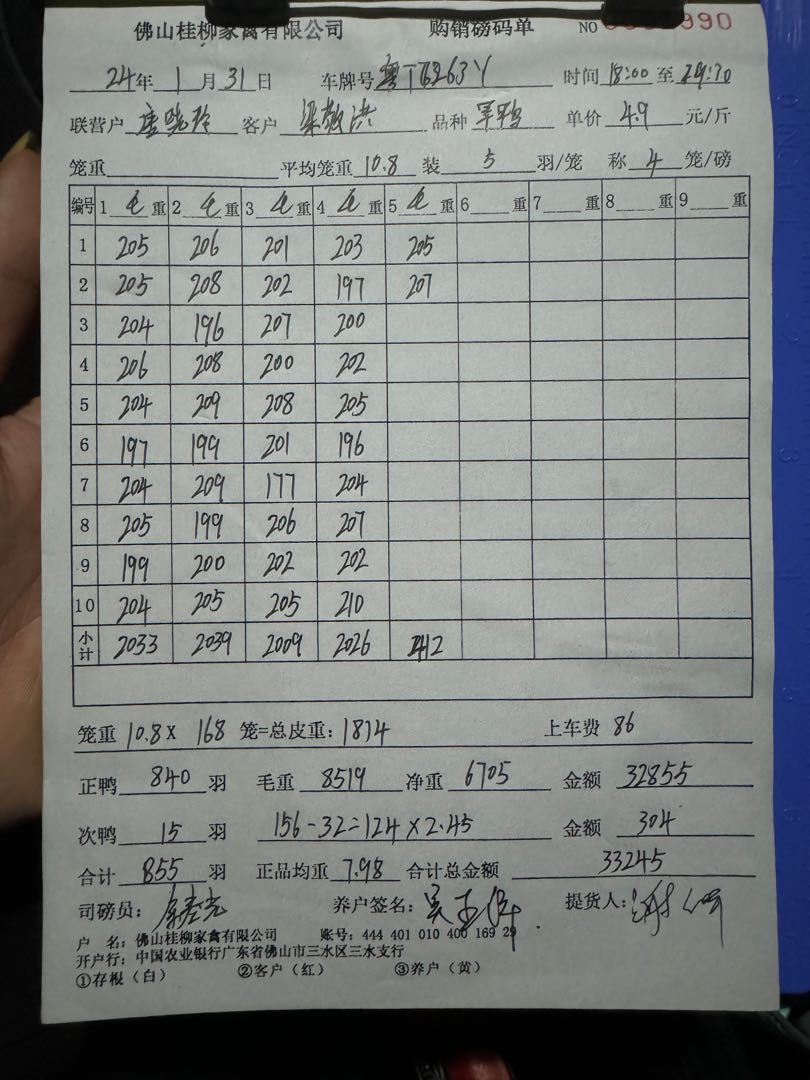 佛山桂柳家禽有限公司 购销磅码单 NO 990
24年 1月31日 车牌号 粤T6263Y 时间 18:00 至
联营户 客户 梁敬洪 品种 单价 4.9 元/斤
笼重 平均笼重 10.8 装 5 羽/笼 称 4 笼/磅
编号 1 毛 重 2 毛 重 3 毛 重 4 毛 重 5 毛 重 6 重 7 重 8 重 9 重
1 205 206 201 203 205
2 205 208 202 197 207
3 204 196 207 200
4 206 208 200 202
5 204 209 208 205
6 197 199 201 196
7 204 209 177 204
8 205 199 206 207
9 199 200 202 202
10 204 205 205 210
小计 2033 2039 2009 2026 412
笼重 10.8 X 168 笼=总皮重: 1814 上车费 86
正鸭 840 羽 毛重 8519 净重 6705 金额 32855
次鸭 15 羽 156-32=124×2.45 金额 304
合计 855 羽 正品均重 7.98 合计总金额 33245
司磅员: 养户签名: 提货人:
户 名: 佛山桂柳家禽有限公司 账号: 444 401 010 400 169 29
开户行: 中国农业银行广东省佛山市三水区三水支行
①存根(白) ②客户(红) ③养户(黄)